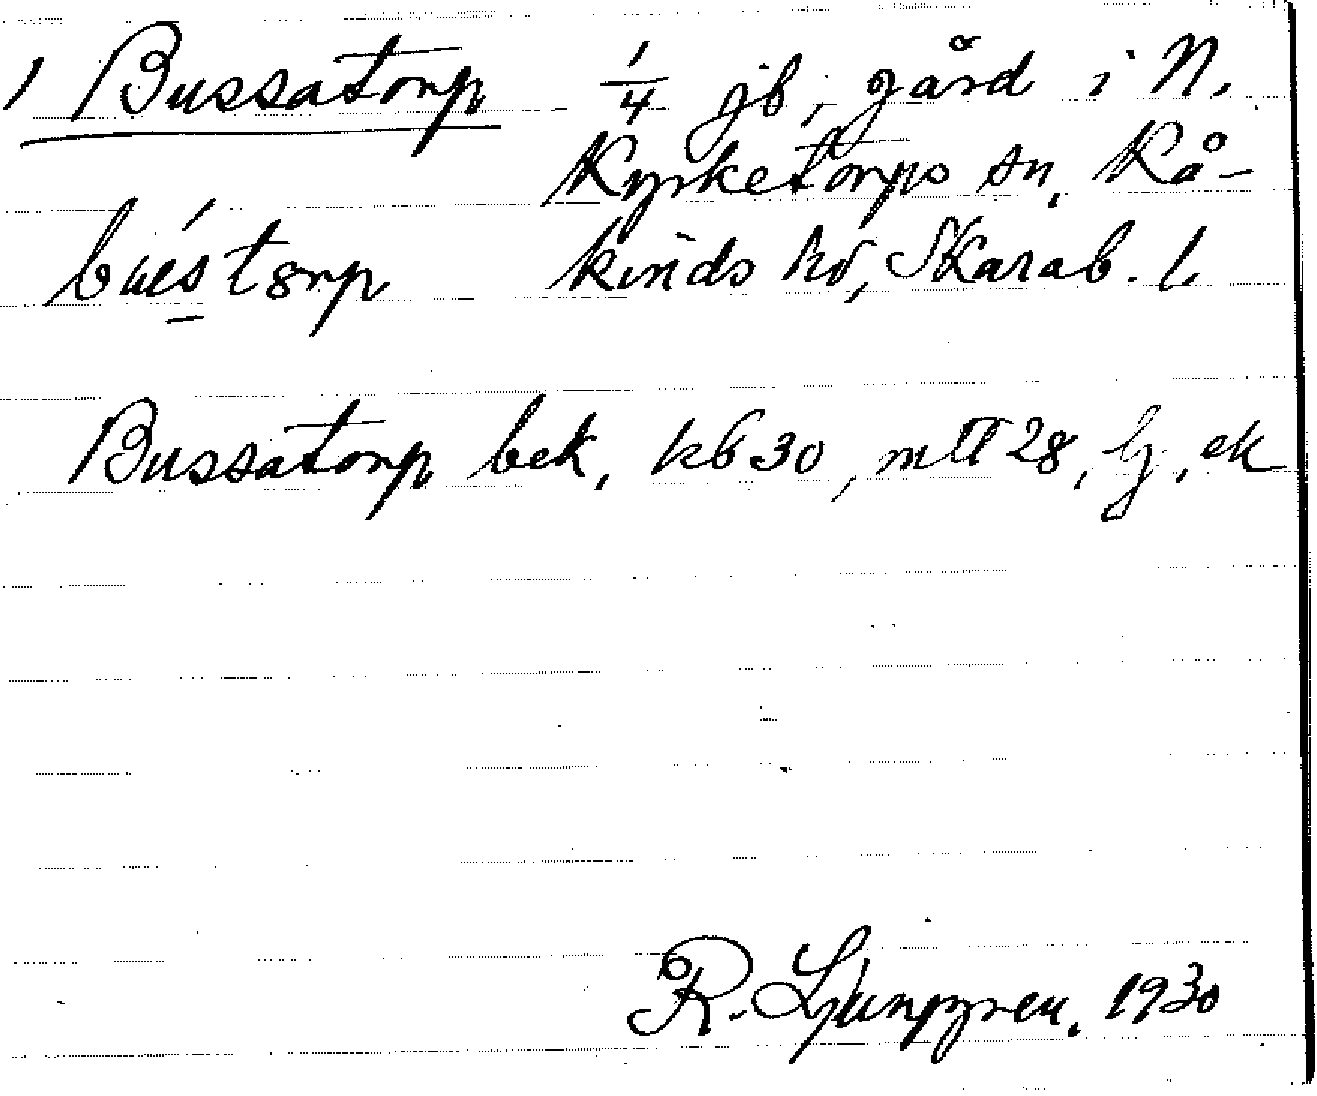 1 Bussatorp 1/4 jb, gård i N.
Kyrketorps sn, Kå-
kinds hd, Skarab. l.
Bussatorp bek, kb 30, mtl 28, lj, ek
R. Ljunggren. 1930